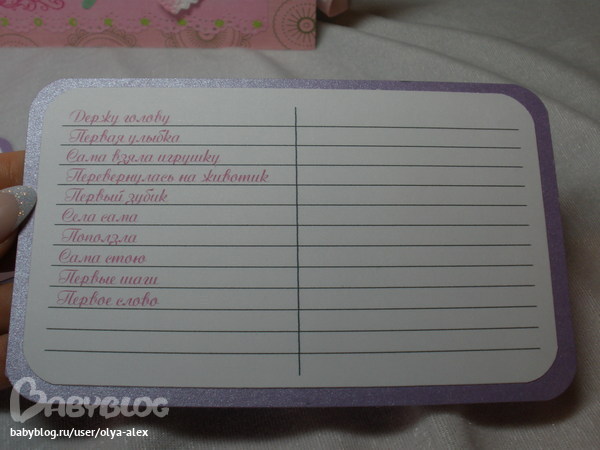 Держу голову
Первая улыбка
Сама взяла игрушку
Перевернулась на животик
Первый зубик
Села сама
Поползла
Сама стою
Первые шаги
Первое слово
BABYBLOG
babyblog.ru/user/olya-alex